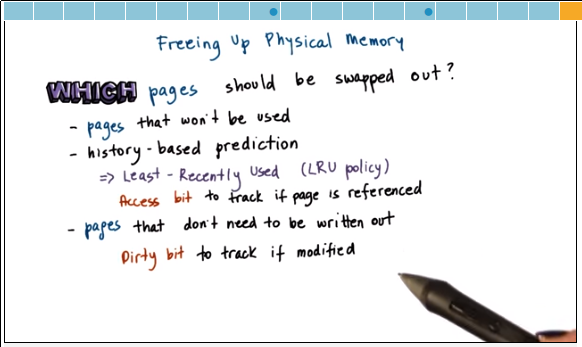 Freeing Up Physical Memory
WHICH pages should be swapped out?
- pages that won't be used
- history-based prediction
=> Least-Recently Used (LRU policy)
Access bit to track if page is referenced
- pages that don't need to be written out
Dirty bit to track if modified